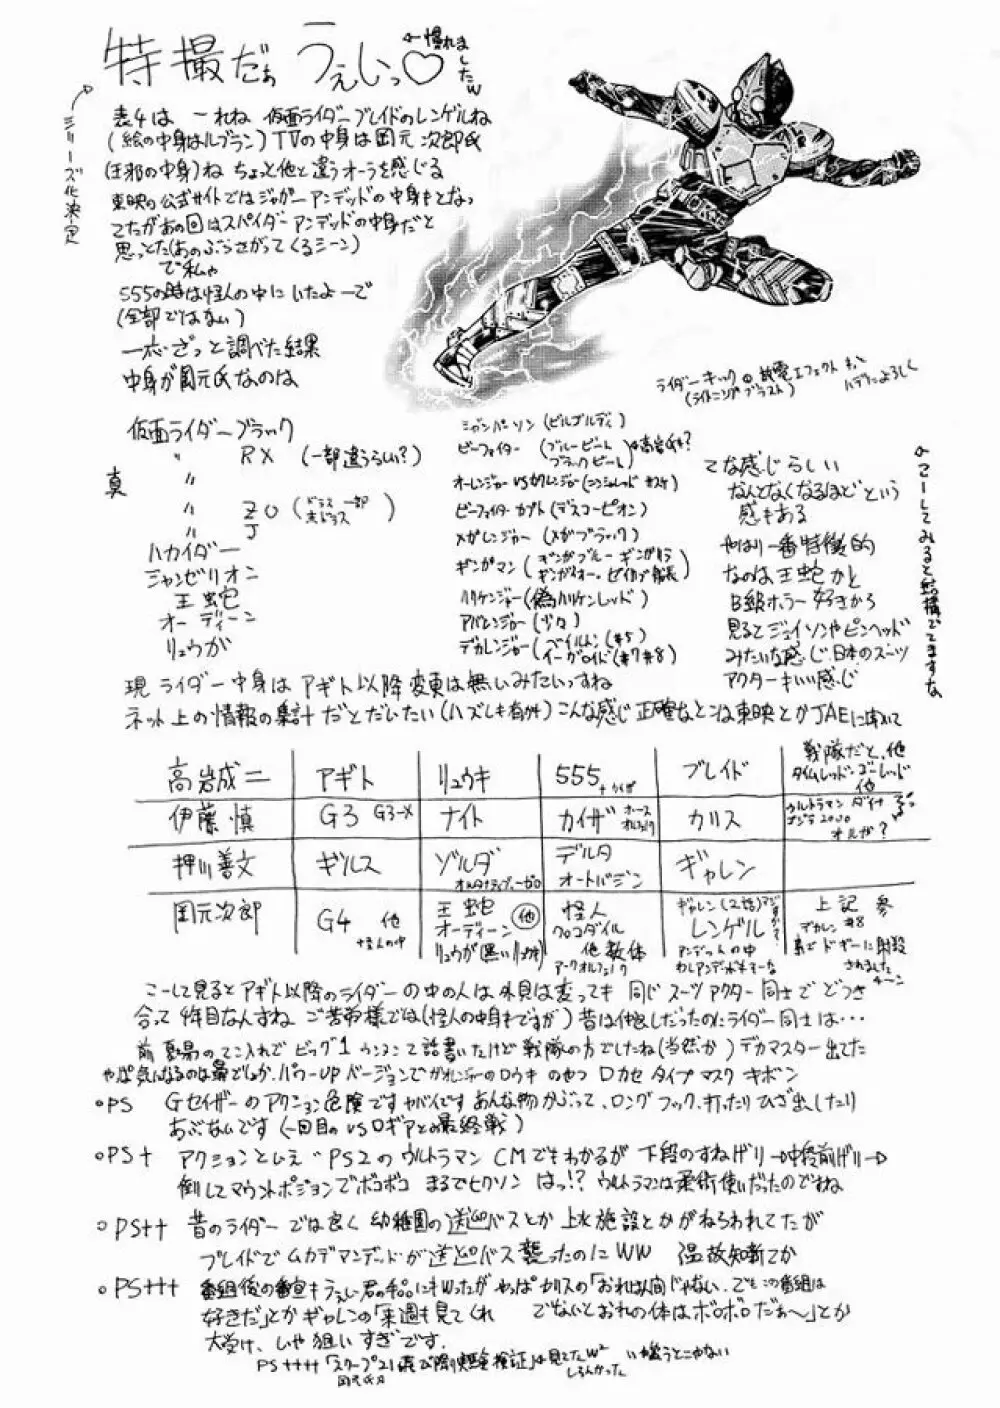 特撮だぁ うぇしっ♡
←慣れましたw
シリーズ化決定
表4は 一れね 仮面ライダーブレイドのレンゲルね
(絵の中身はルブラン)TVの中身は岡元次郎氏
(王邪の中身)ね ちょっと他と違うオーラを感じる
東映の公式サイトではジャガーアンデッドの中身もとなっ
てたがあの回はスパイダーアンデッドの中身だと
思っとた(あのぶらさがってくるシーン)
で私ゃ
555の時は怪人の中にいたよーで
(全部ではない)
一応ざっと調べた結果
中身が岡元氏なのは
ライダーキックの放電エフェクトも
(ライトニングブラスト)
ハデによろしく
仮面ライダーブラック
〃 RX (一部違うらしい?)
真 〃
〃 ZO (ドラス一部 赤ドラス)
〃 J
ハカイダー
ジャンゼリオン
王蛇
オーディーン
リュウガ
ジャンパーソン(ビルゴルディ)
ビーファイター (ブルービート ブラックビート)←高岩氏も?
オーレンジャーVSカクレンジャー(ニンジャレッド サスケ)
ビーファイターカブト(デスコーピオン)
メガレンジャー(メガブラック)
ギンガマン(ギンガブルー ギンガイオー・ゼイハブ船長)
ハリケンジャー(偽ハリケンレッド)
アバレンジャー(少々)
デカレンジャー(ベイルドン(#5) イーガロイド(#7#8)
てな感じらしい
なんとなくなるほどという
感もある
やはり一番特徴的
なのは王蛇かと
B級ホラー好きから
見るとジェイソンやピンヘッド
みたいな感じ 日本のスーツ
アクターもいい感じ
←こーしてみると結構でてますな
現ライダー中身はアギト以降変更は無いみたいっすね
ネット上の情報の集計だとだいたい(ハズレも有かも)こんな感じ正確なとこは東映とかJAEに聞いて
高岩成二 アギト リュウキ 555 +カイザ ブレイド 戦隊だと、他 タイムレッド・ゴーレッド 他
伊藤慎 G3 G3-X ナイト カイザ ホースオルフェノク カリス ウルトラマンダイナ ゴジラ2000 オルガ?
押川善文 ギルス ゾルダ オルタナティブ・ゼロ デルタ オートバジン ギャレン
岡元次郎 G4 他 怪人の中 王蛇 オーディーン 他 リュウガ(黒いリュウキ) 怪人 クロコダイル 他数体 アークオルフェノク ギャレン(2話)マジすか? レンゲル アンデットの中 わしアンデットもすーな 上記参 デカレン#8 素でドギーに射殺されました チーン
こーして見るとアギト以降のライダーの中の人は外見は変っても 同じスーツアクター同士で どつき
合って4年目なんすね ご苦労様では(怪人の中身もですが)昔は仲良しだったのにライダー同士は・・・
前 夏場のてこ入れで ビッグ1 ウンヌンて話書いたけど戦隊の方でしたね(当然か)デカマスター出てた
やっぱ気になるのは鼻でしょか、パワーUPバージョンでガオレンジャーのロウキのやつ ロカセ タイプマスク キボン
○PS Gセイザーのアクション危険ですヤバイです あんな物かぶって、ロングフック、打ったりひざ出したり
あぶないです(一回目のvsロギアとの最終戦)
○PS+ アクションといえばPS2のウルトラマンCMでもわかるが 下段のすねげり→中段前げり→
倒してマウントポジションでボコボコ まるでヒクソン はっ!?ウルトラマンは柔術使いだったのですね
○PS++ 昔のライダーでは良く 幼稚園の送迎バスとか上水施設とかがねらわれてたが
ブレイドでムカデアンデッドが送迎バス襲ったのにWW 温故知新てか
○PS+++ 番組後の番宣もうぇしぃ君の手。。にもWったが やっぱカリスの「おれは人間じゃない、でもこの番組は
好きだ」とか ギャレンの「来週も見てくれ でないとおれの体はボロボロだぁ〜」とか
大受け、しゃ狙いすぎです。
PS++++「スクープ21飛び降り実験検証」は見てたW
岡元氏か しらんかった